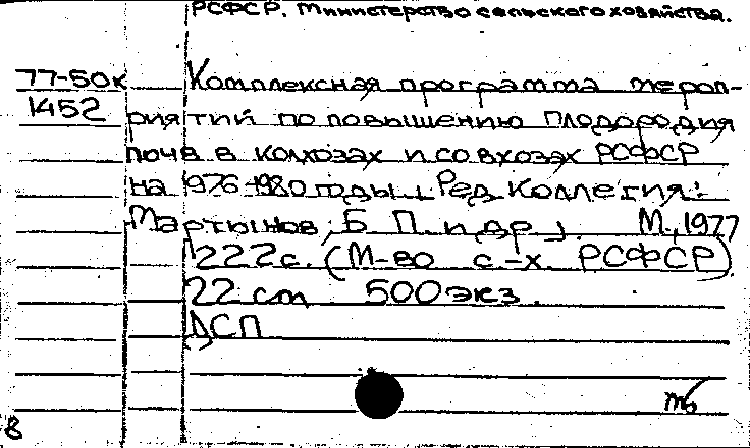 РСФСР. Министерство сельского хозяйства.
77-50к Комплексная программа мероп-
1452 риятий по повышению плодородия
почв в колхозах и совхозах РСФСР
на 1976-1980 годы [Ред. коллегия:
Мартынов Б. П. и др.]. М., 1977
222 с. (М-во с.-х. РСФСР)
22 cm 500 экз.
ДСП
8